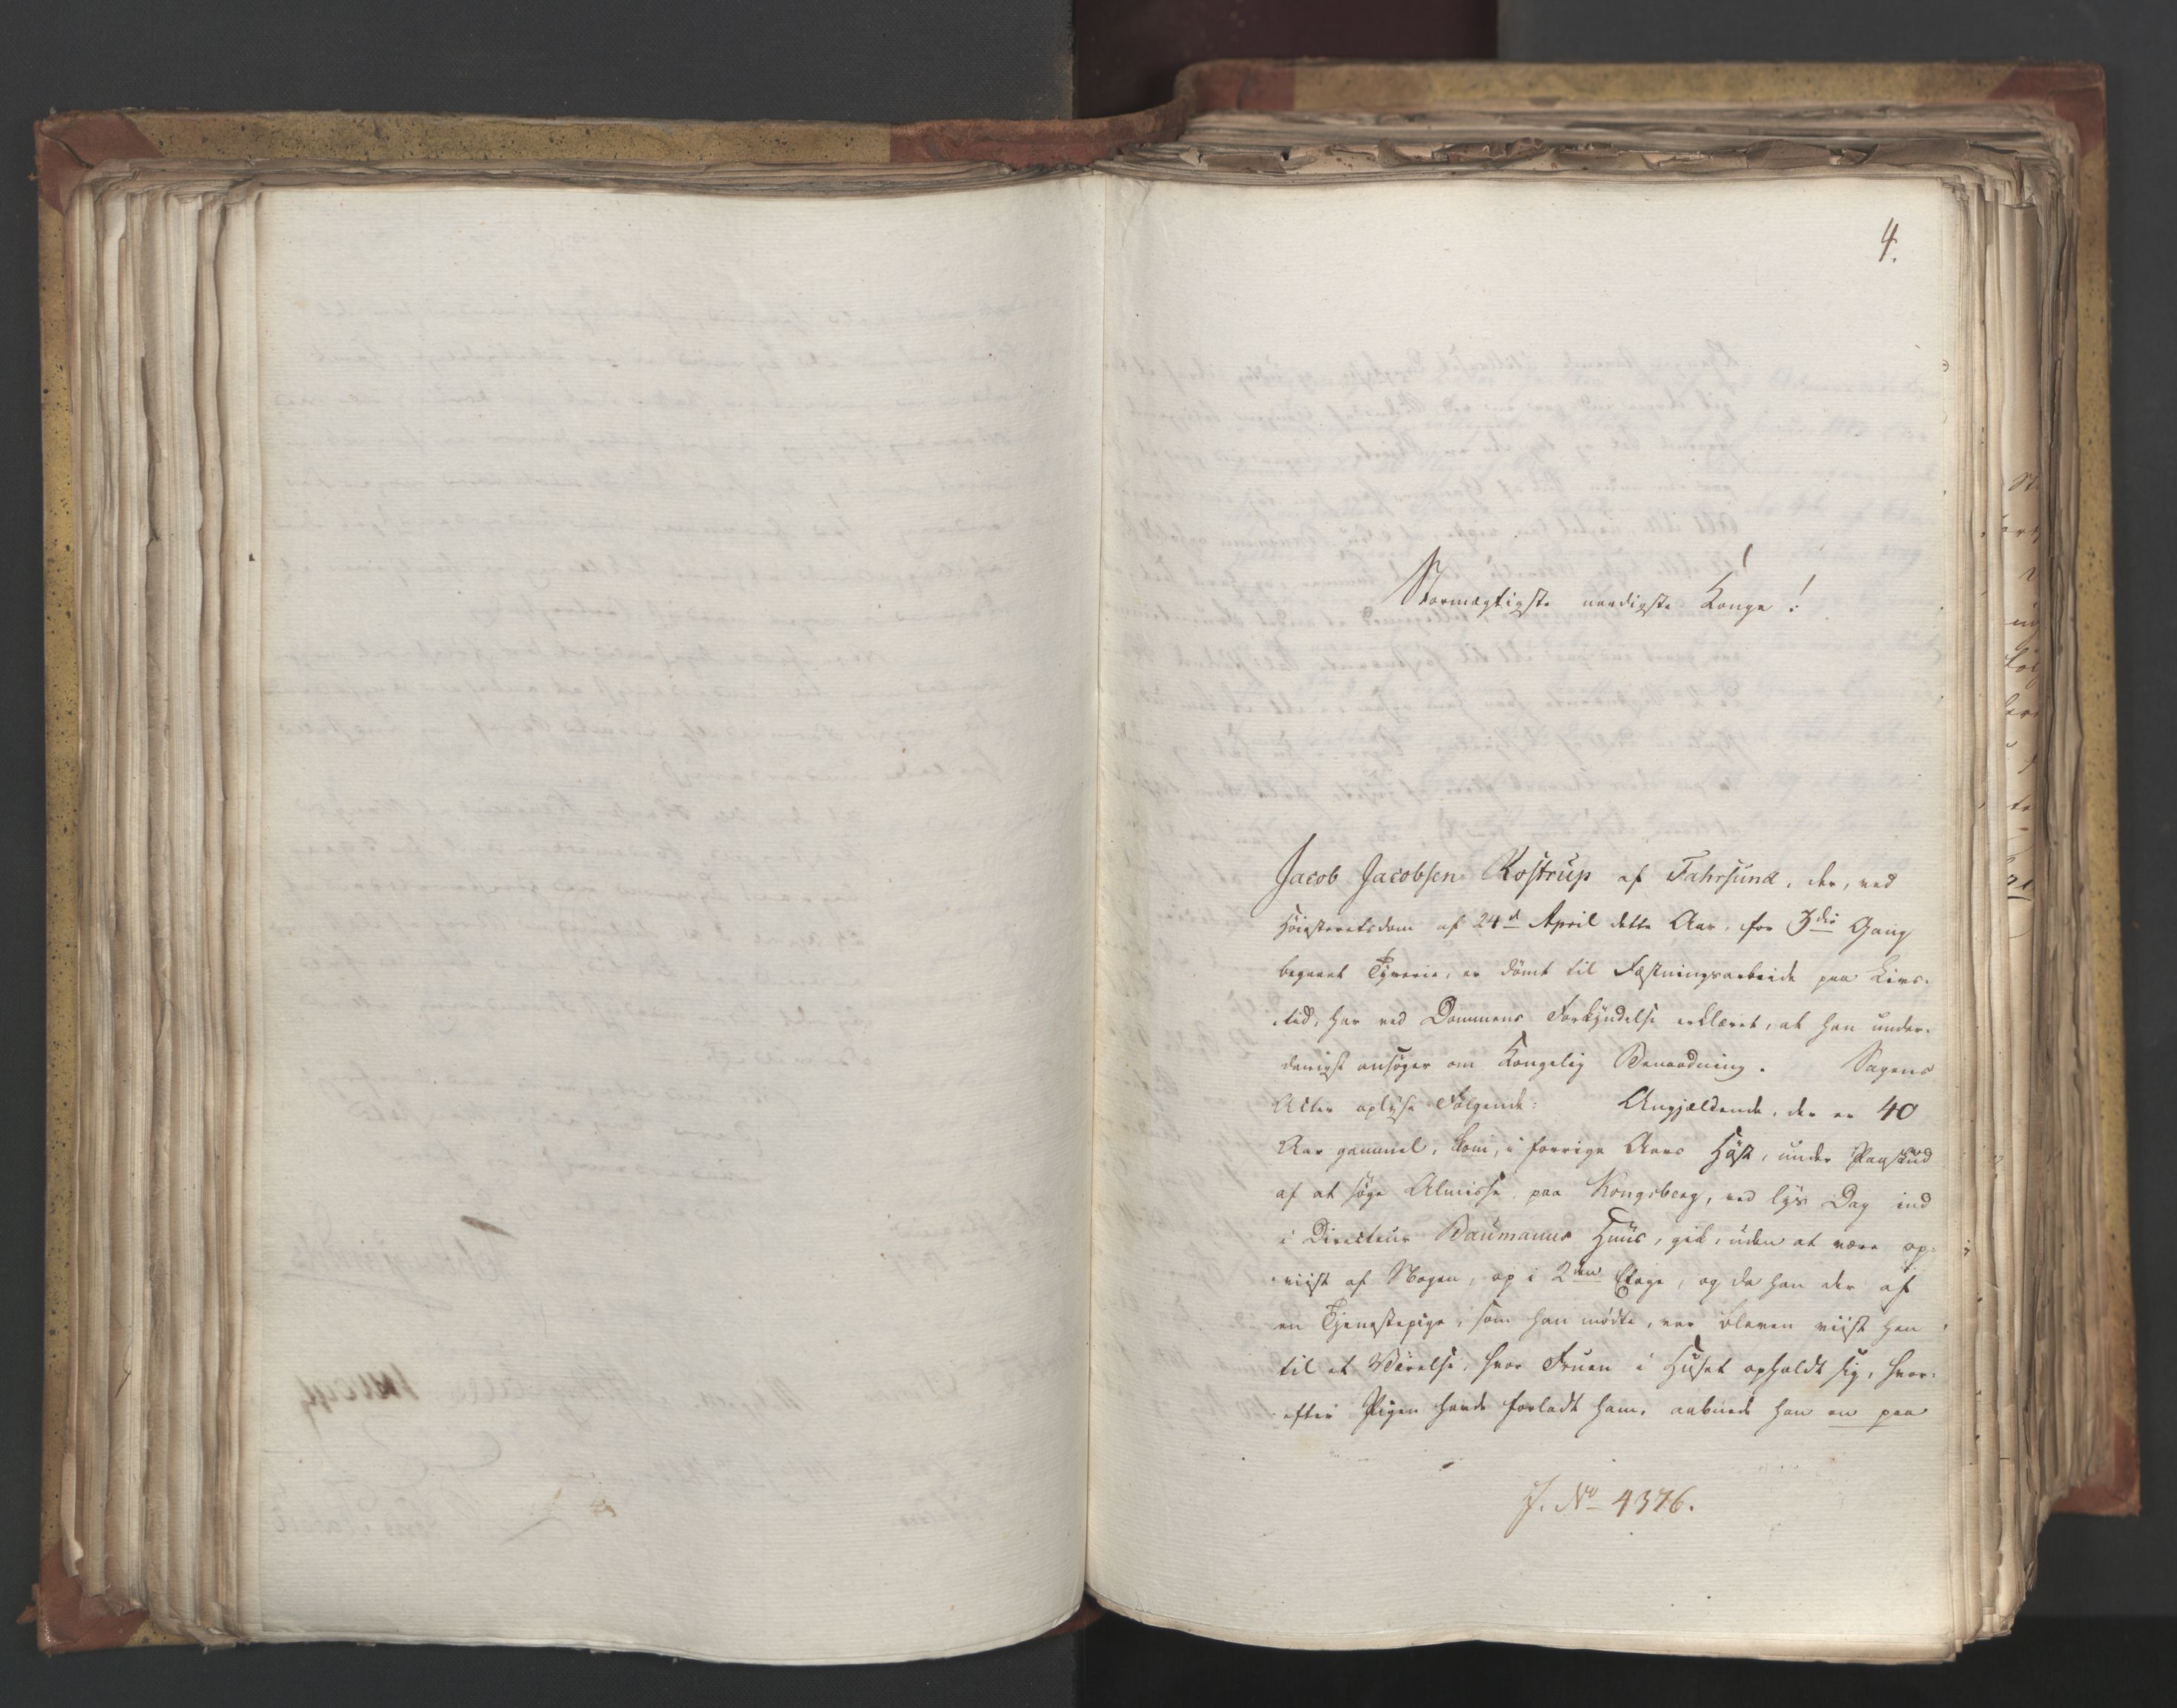 4.
Stormægtigste naadigste Konge!
Jacob Jacobsen Rostrup af Fahrsund, der, ved
Høiesteretsdom af 24d April dette Aar, for 3die Gang
begaaet Tyverie, er dømt til Fæstningsarbeide paa Livs-
tid, har ved Dommens Forkyndelse erklæret, at han under-
danigst ansøger om Kongelig Benaadning. Sagens
Acter oplyse Følgende: Angjældende, der er 40
Aar gammel, kom, i forrige Aars Høst, under Paaskud
af at søge Almisse paa Kongsberg, ved lys Dag ind
i Directeur Baumanns Huus, gik, uden at være op-
viist af Nogen, op i 2den Etage, og da han der af
en Tjenestepige, som han mødte, var bleven viist hen
til et Værelse, hvor Fruen i Huset opholdt sig, hvor-
efter Pigen havde forladt ham, aabnede han en paa
J. No 4376.